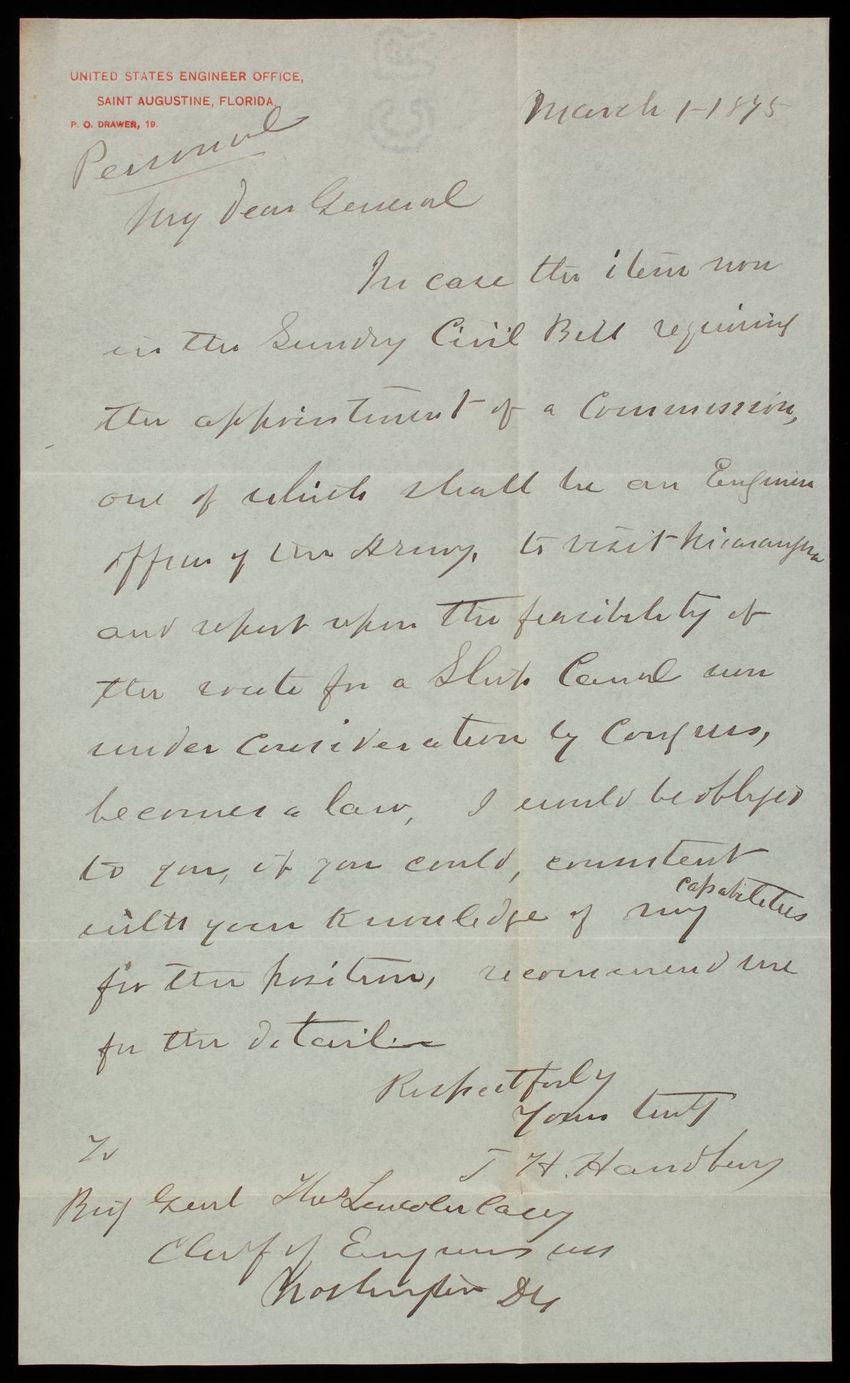 UNITED STATES ENGINEER OFFICE,
SAINT AUGUSTINE, FLORIDA,
P. O. DRAWER, 19.
March 1-1895
Personal
My Dear General
In case the item now
in the Sundry Civil Bill requiring
the appointment of a Commission,
one of which shall be an Engineer
officer of the Army, to visit Nicaraugua
and report upon the feasibility of
the route for a Ship Canal now
under consideration by Congress,
becomes a law, I would be obliged
to you, if you could, consistent
with your knowledge of my capabilities
for the position, recommend me
for the detail
Respectfully
Yours truly
T H. Handbury
To
Brig Genl Thos Lincoln Casey
Chief of Engineers USA
Washington DC